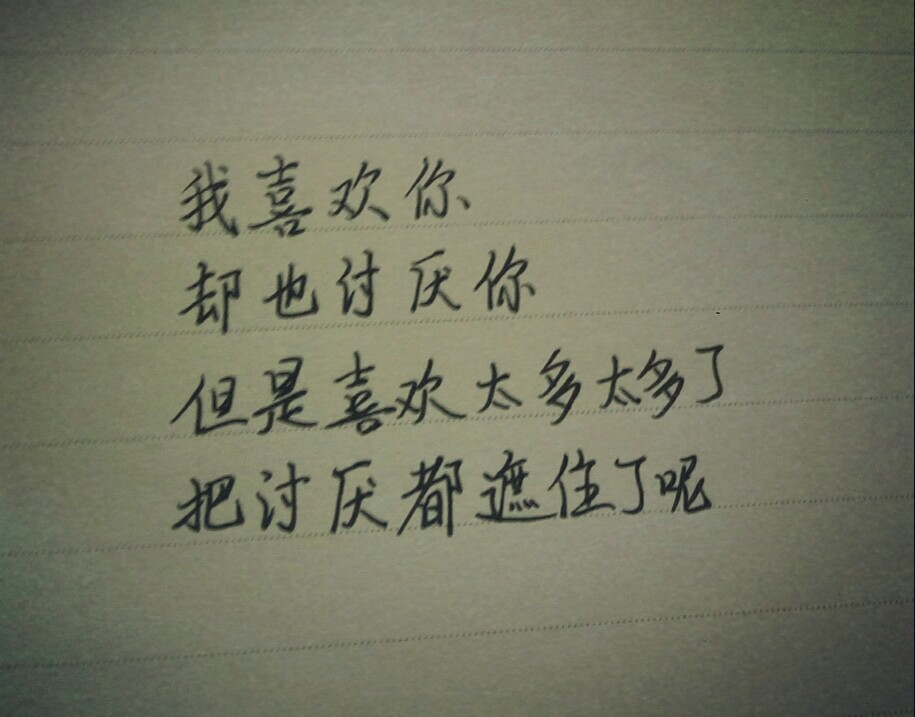 我喜欢你
却也讨厌你
但是喜欢太多太多了
把讨厌都遮住了呢